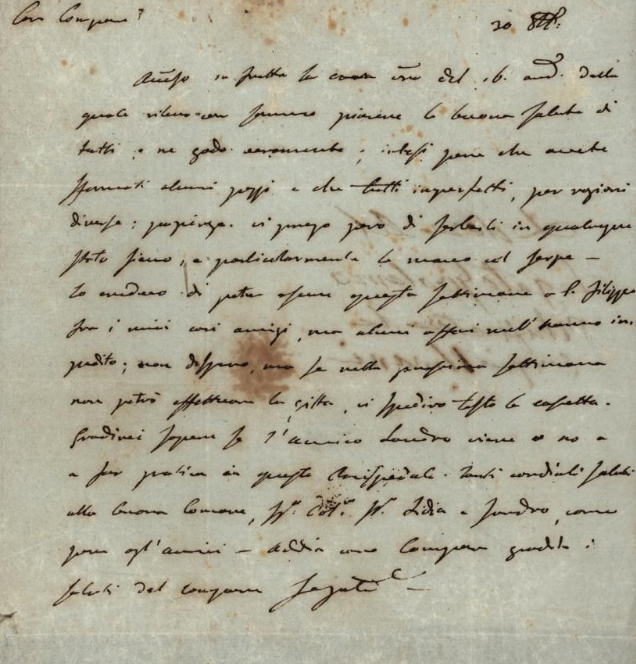 Caro Compare
20 8bre
Accuso in fretta la cara vra del 16. and. dalla
quale rilevo con sommo piacere la buona salute di
tutti, e ne godo veramente; intesi pure che avete
formati alcuni pezzi e che tutti imperfetti, per ragioni
diverse; pazienza. vi prego però di serbarli in qualunque
stato sieno, e particolarmente la mano col serpe –
Io credevo di poter essere questa settimana a S. Filippo
fra i miei cari amici, ma alcuni affari me l'hanno im
pedito; non dispero, ma se nella prossima settimana
non potrò effettuare la gita, vi spedirò tosto la casetta.
Gradirei sapere se l'amico Sandro viene o no a
a far pratica in questo Arcispedale. tanti cordiali saluti
alla buona Comare, Lidia e Sandro, come
pure agl'amici – Addio caro Compare gradite i
saluti del compare Segato